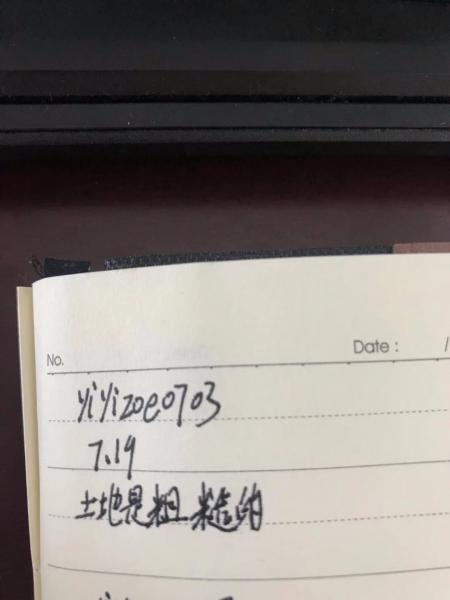 No.
Date : /
yiyizoe0703
7.19
土地是粗糙的